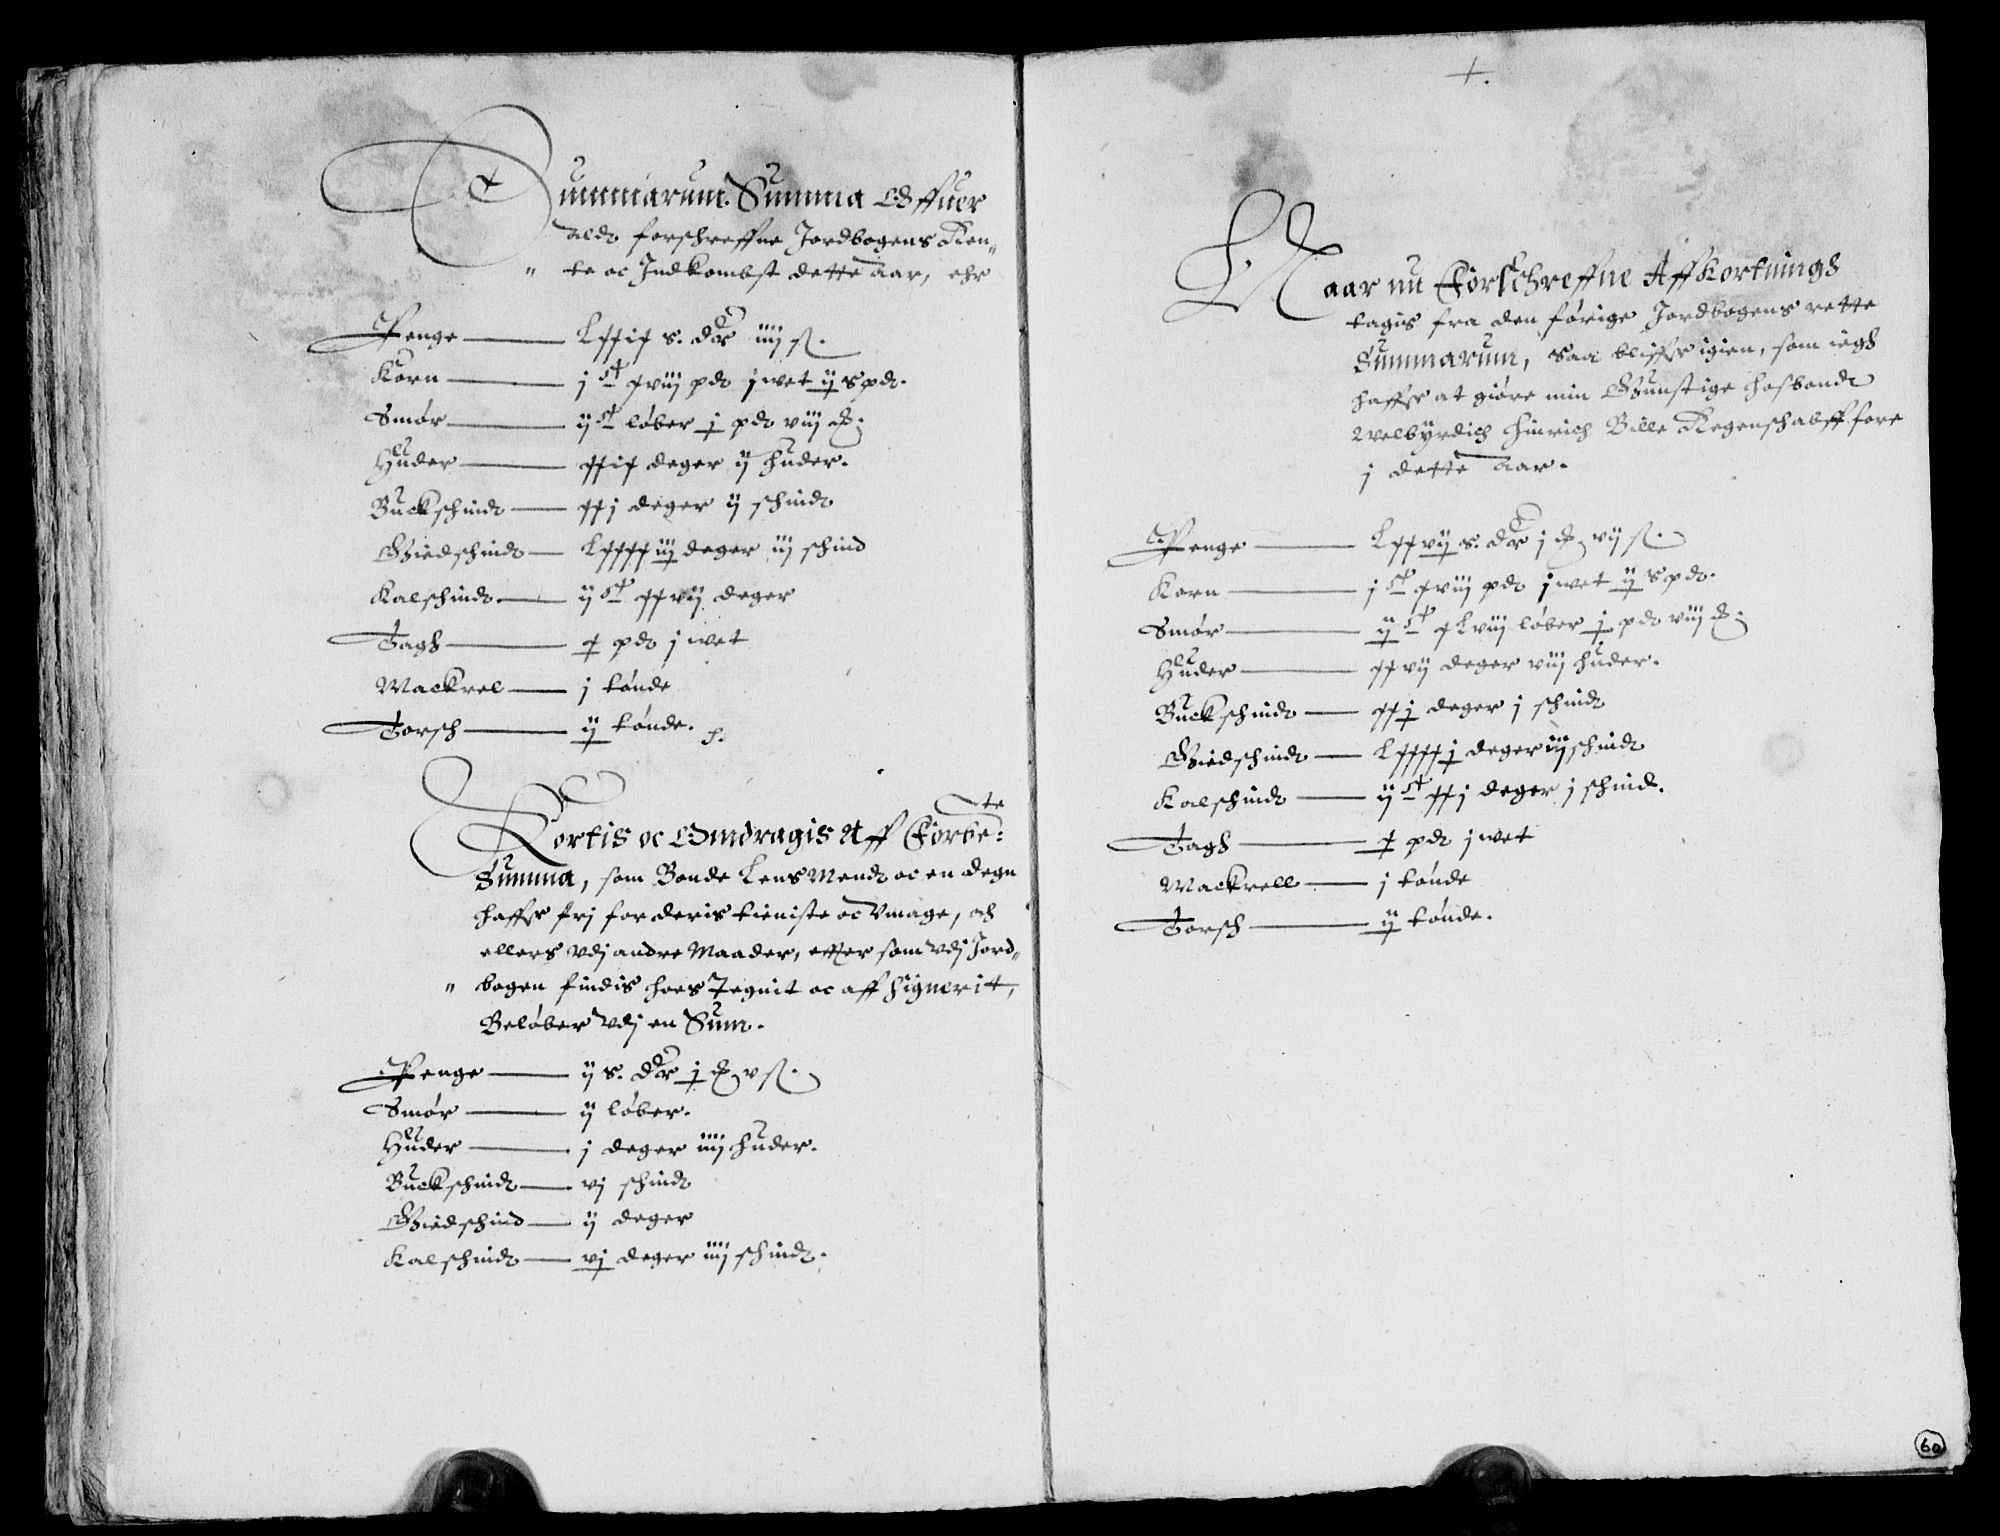 Summarum Summa Offuer
aldt forschreffne Jordbogens Ren„
„ te oc Indkombst dette aar, ehr
Penge — Lxxix s. dlr iiij ß.
Korn — j C xviij pdt j wet ij spdt.
Smør — ij C løber j pdt viij ℔.
Huder — xxix deger ij huder.
Buckschindt — xxj deger ij schindt
Giedschindt — Lxxxxiij deger iij schind
Kalschindt — ij C xxvij deger
Tagh — x pdt j wet
Mackrel — j tønde
Torsch — ij tønde.
Kortis oc Omdragis Aff Forbe:te
Summa, som Bonde Lens Mendt oc en degn
haffr frj for deris tieniste oc vmage, och
ellers vdj andre Maader, effter som vdj Jord„
„ bogen findis hoes Tegnit oc aff Signerit,
Beløber vdj en Sum.
Penge — ij s. dlr j ℔ v ß.
Smør — ij løber.
Huder — j deger iiij huder.
Buckschindt — vj schindt
Giedschind — ij deger
Kalschindt — vj deger iiij schindt.
Naar nu Forschreffne Affkortningh
tagis fra den førige Jordbogens rette
Summarum, saa bliffr igien, som iegh
haffr at giøre min Gunstige hosbondt
Velbyrdich Hinrich Bille Regenschabff fore
j dette aar.
Penge — Lxxvij s. dlr j ℔ vij ß.
Korn — j C xviij pdt j wet ij spdt.
Smør — ij C xLviij løber j pdt viij ℔.
Huder — xxvij deger viij huder.
Buckschindt — xxj deger j schindt
Giedschindt — Lxxxxj deger iij schindt
Kalschindt — ij C xxj deger j schind.
Tagh — x pdt j wet
Mackrell — j tønde
Torsch — ij tønde.
60